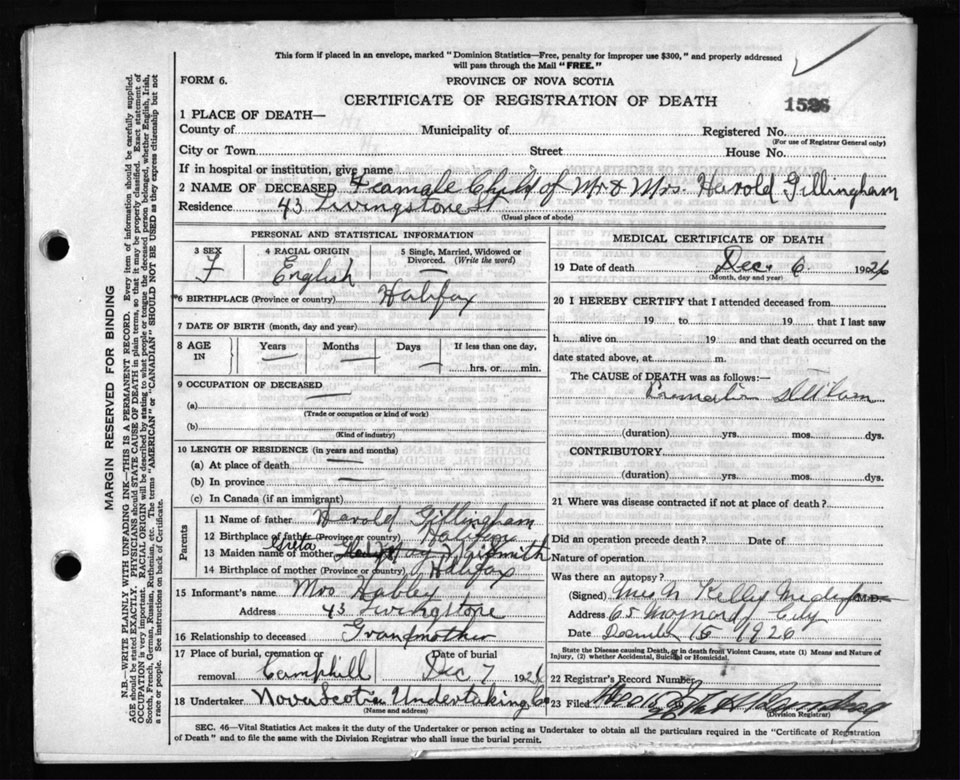 This form if placed in an envelope, marked "Dominion Statistics—Free, penalty for improper use $300," and properly addressed
will pass through the Mail "FREE."
FORM 6.
PROVINCE OF NOVA SCOTIA
CERTIFICATE OF REGISTRATION OF DEATH
1526
1 PLACE OF DEATH—
County of Municipality of Registered No.
(For use of Registrar General only)
City or Town Street House No.
If in hospital or institution, give name
2 NAME OF DECEASED Feamale Child of Mr. & Mrs. Harold Gillingham
Residence 43 Livingstone St
(Usual place of abode)
PERSONAL AND STATISTICAL INFORMATION
3 SEX F
4 RACIAL ORIGIN English
5 Single, Married, Widowed or Divorced. (Write the word) —
6 BIRTHPLACE (Province or country) Halifax
7 DATE OF BIRTH (month, day and year)
8 AGE IN Years — Months — Days — If less than one day, hrs. or min.
9 OCCUPATION OF DECEASED
(a) —
(Trade or occupation or kind of work)
(b)
(Kind of industry)
10 LENGTH OF RESIDENCE (in years and months)
(a) At place of death —
(b) In province —
(c) In Canada (if an immigrant)
Parents
11 Name of father Harold Gillingham
12 Birthplace of father (Province or country) Halifax
13 Maiden name of mother Naismith
14 Birthplace of mother (Province or country) Halifax
15 Informant's name Mrs Habley
Address 43 Livingstone
16 Relationship to deceased Grandmother
17 Place of burial, cremation or removal Camphill
Date of burial Dec 7 1926
18 Undertaker Nova Scotia Undertaking Co
(Name and address)
MEDICAL CERTIFICATE OF DEATH
19 Date of death Dec. 6 1926
(Month, day and year)
20 I HEREBY CERTIFY that I attended deceased from
19 to 19 that I last saw
h alive on 19 and that death occurred on the
date stated above, at m.
The CAUSE of DEATH was as follows:—
(duration) yrs. mos. dys.
CONTRIBUTORY
(duration) yrs. mos. dys.
21 Where was disease contracted if not at place of death?
Did an operation precede death? Date of
Nature of operation
Was there an autopsy?
(Signed) Kelly M.D.
Address 65 Maynard City
Date December 15 1926
State the Disease causing Death, or in death from Violent Causes, state (1) Means and Nature of
Injury, (2) whether Accidental, Suicidal or Homicidal.
22 Registrar's Record Number
23 Filed
(Division Registrar)
SEC. 46—Vital Statistics Act makes it the duty of the Undertaker or person acting as Undertaker to obtain all the particulars required in the "Certificate of Registration
of Death" and to file the same with the Division Registrar who shall issue the burial permit.
MARGIN RESERVED FOR BINDING
N.B.—WRITE PLAINLY WITH UNFADING INK—THIS IS A PERMANENT RECORD. Every item of information should be carefully supplied.
AGE should be stated EXACTLY. PHYSICIANS should STATE CAUSE OF DEATH in plain terms, so that it may be properly classified. Exact statement of
OCCUPATION is very important. RACIAL ORIGIN will be described by stating to what people or tongue the deceased person belonged, whether English, Irish,
Scotch, French, German, Russian, Ruthenian, etc. The terms "AMERICAN" or "CANADIAN" SHOULD NOT BE USED as they express citizenship but not
a race or people. See instructions on back of Certificate.